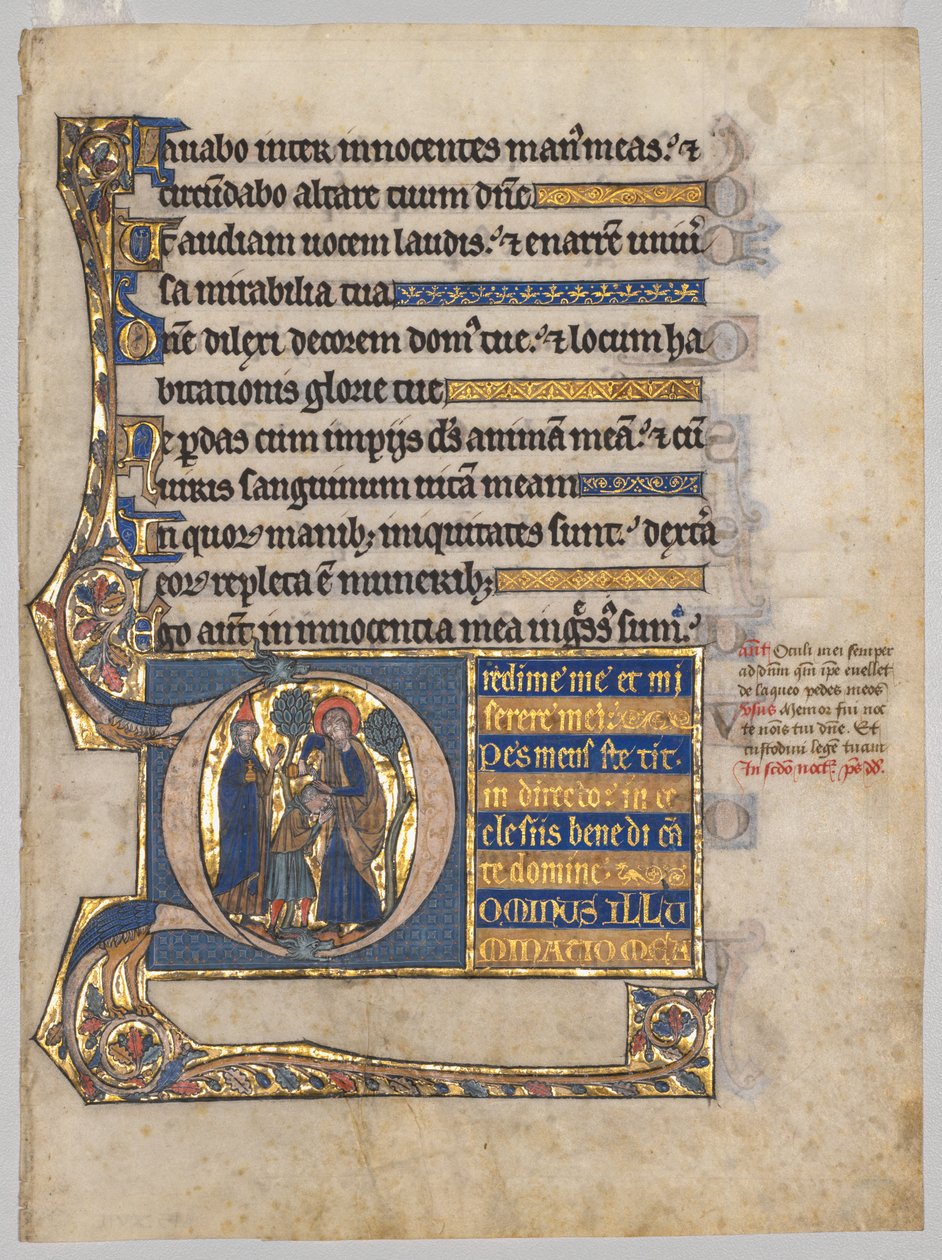 Lauabo inter innocentes man᾽ meas. ⁊
circūdabo altare tuum dn̄e
Ut audiam uocem laudis. ⁊ enarrē uniũ
sa mirabilia tua
Dn̄e dilexi decorem dom᾽ tue. ⁊ locum ha
bitationis glorie tue
Ne ꝑdas cum impijs d̄s animā meā. ⁊ cū
uiris sanguinum uitā meam
In quoꝝ manibꝫ iniquitates sunt. dext̃a
eoꝝ repleta ē muneribꝫ
Ego aūt in innocentia mea ingͤss᾽ sum.
redime me et mi
serere mei
Pes meus ste tit
in directo in ec
clesiis bene di cā
te domine
OMINUS ILLU
MINATIO MEA
ant᾽ Oculi mei semper
ad dn̄m qm̄ ipē euellet
de laqueo pedes meos
v̄sus Memor fui noc
te nōis tui dn̄e. Et
custodiui legē tuam
In scdō noct᾽. ps̄ dd̄.